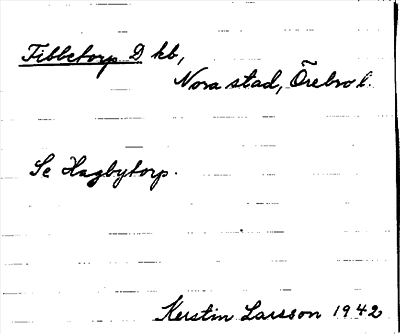 Fibbetorp D kb,
Nora stad, Örebro l.
Se Hagbytorp.
Kerstin Larsson 1942